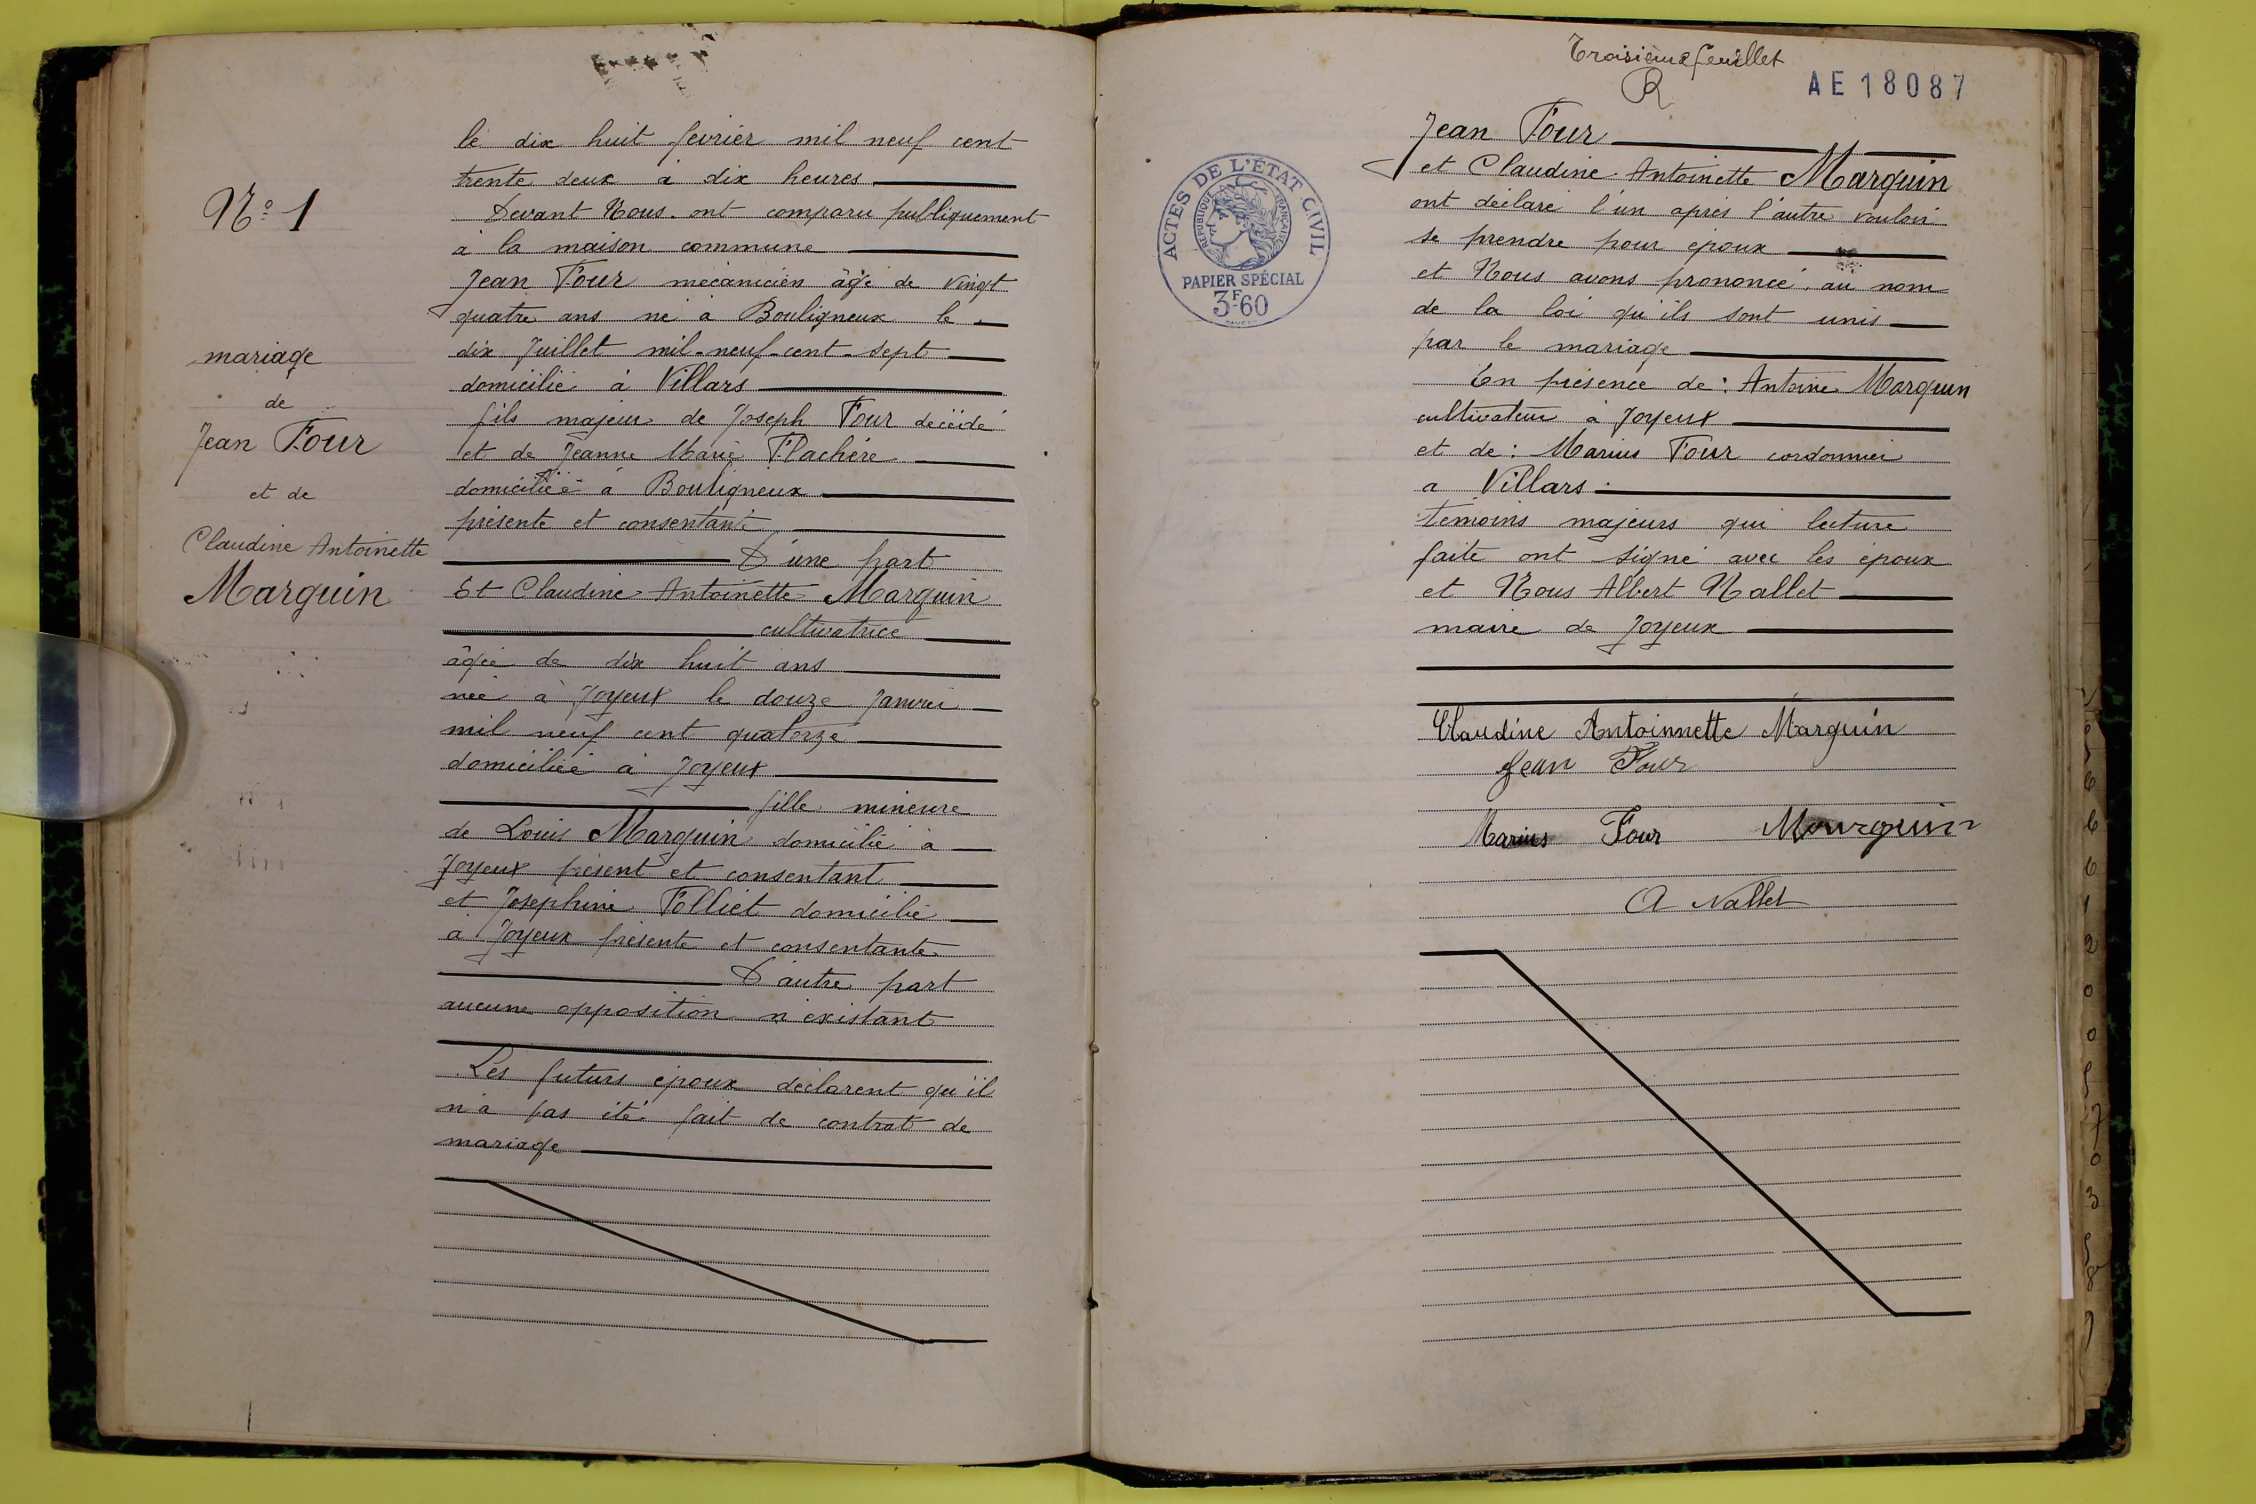 N° 1
mariage
de
Jean Four
et de
Claudine Antoinette
Marguin
le dix huit fevrier mil neuf cent
trente deux à dix heures
Devant Nous ont comparu publiquement
à la maison commune
Jean Four mécanicien âgé de vingt
quatre ans né à Bouligneux le
dix Juillet mil-neuf-cent-sept
domicilié à Villars
fils majeur de Joseph Four décédé
et de Jeanne Marie Flachère
domiciliée à Bouligneux
présente et consentante
D'une part
Et Claudine Antoinette Marguin
cultivatrice
âgée de dix huit ans
née à Joyeux le douze Janvier
mil neuf cent quatorze
domiciliée à Joyeux
fille mineure
de Louis Marguin domicilié à
Joyeux présent et consentant
et Josephine Folliet domicilié
à Joyeux présente et consentante
D'autre part
aucune opposition n'existant
Les futurs époux déclarent qu'il
n'a pas été fait de contrat de
mariage
Troisième feuillet
R
AE 18087
ACTES DE L'ÉTAT CIVIL
RÉPUBLIQUE FRANÇAISE
PAPIER SPÉCIAL
3F-60
Jean Four
et Claudine Antoinette Marguin
ont déclaré l'un après l'autre vouloir
se prendre pour époux
et Nous avons prononcé au nom
de la loi qu'ils sont unis
par le mariage
En présence de : Antoine Marguin
cultivateur à Joyeux
et de : Marius Four cordonnier
a Villars
témoins majeurs qui lecture
faite ont signé avec les époux
et Nous Albert Nallet
maire de Joyeux
Claudine Antoinnette Marguin
Jean Four
Marius Four Marguin
A Nallet